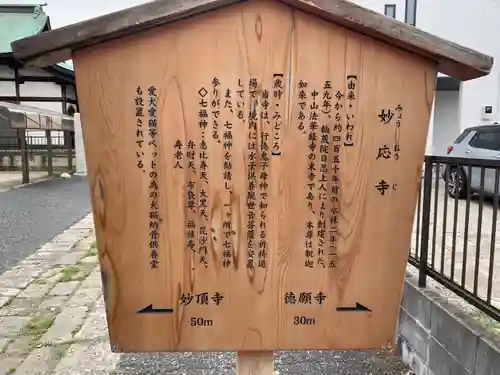 妙応寺
みょうおうじ
【由来・いわれ】
今から約四百五十年前の永禄二年(一五
五九年)、蔵院日忍上人により創建された、
中山法華経寺の末寺であり、本尊は釈迦
如来である。
【歳時・みどころ】
当寺は、行徳鬼子母神で知られる祈祷道
場で、境内には蔵佛供養観世音菩薩を安置
している。
また、七福神を勧請し、一ヶ所で七福神
参りができる。
◇七福神:恵比寿天、大黒天、毘沙門天、
弁財天、布袋尊、福禄寿、
寿老人
愛犬愛猫等ペットの為の犬猫納骨供養堂
も設置されている。
妙頂寺
50m
徳願寺
30m